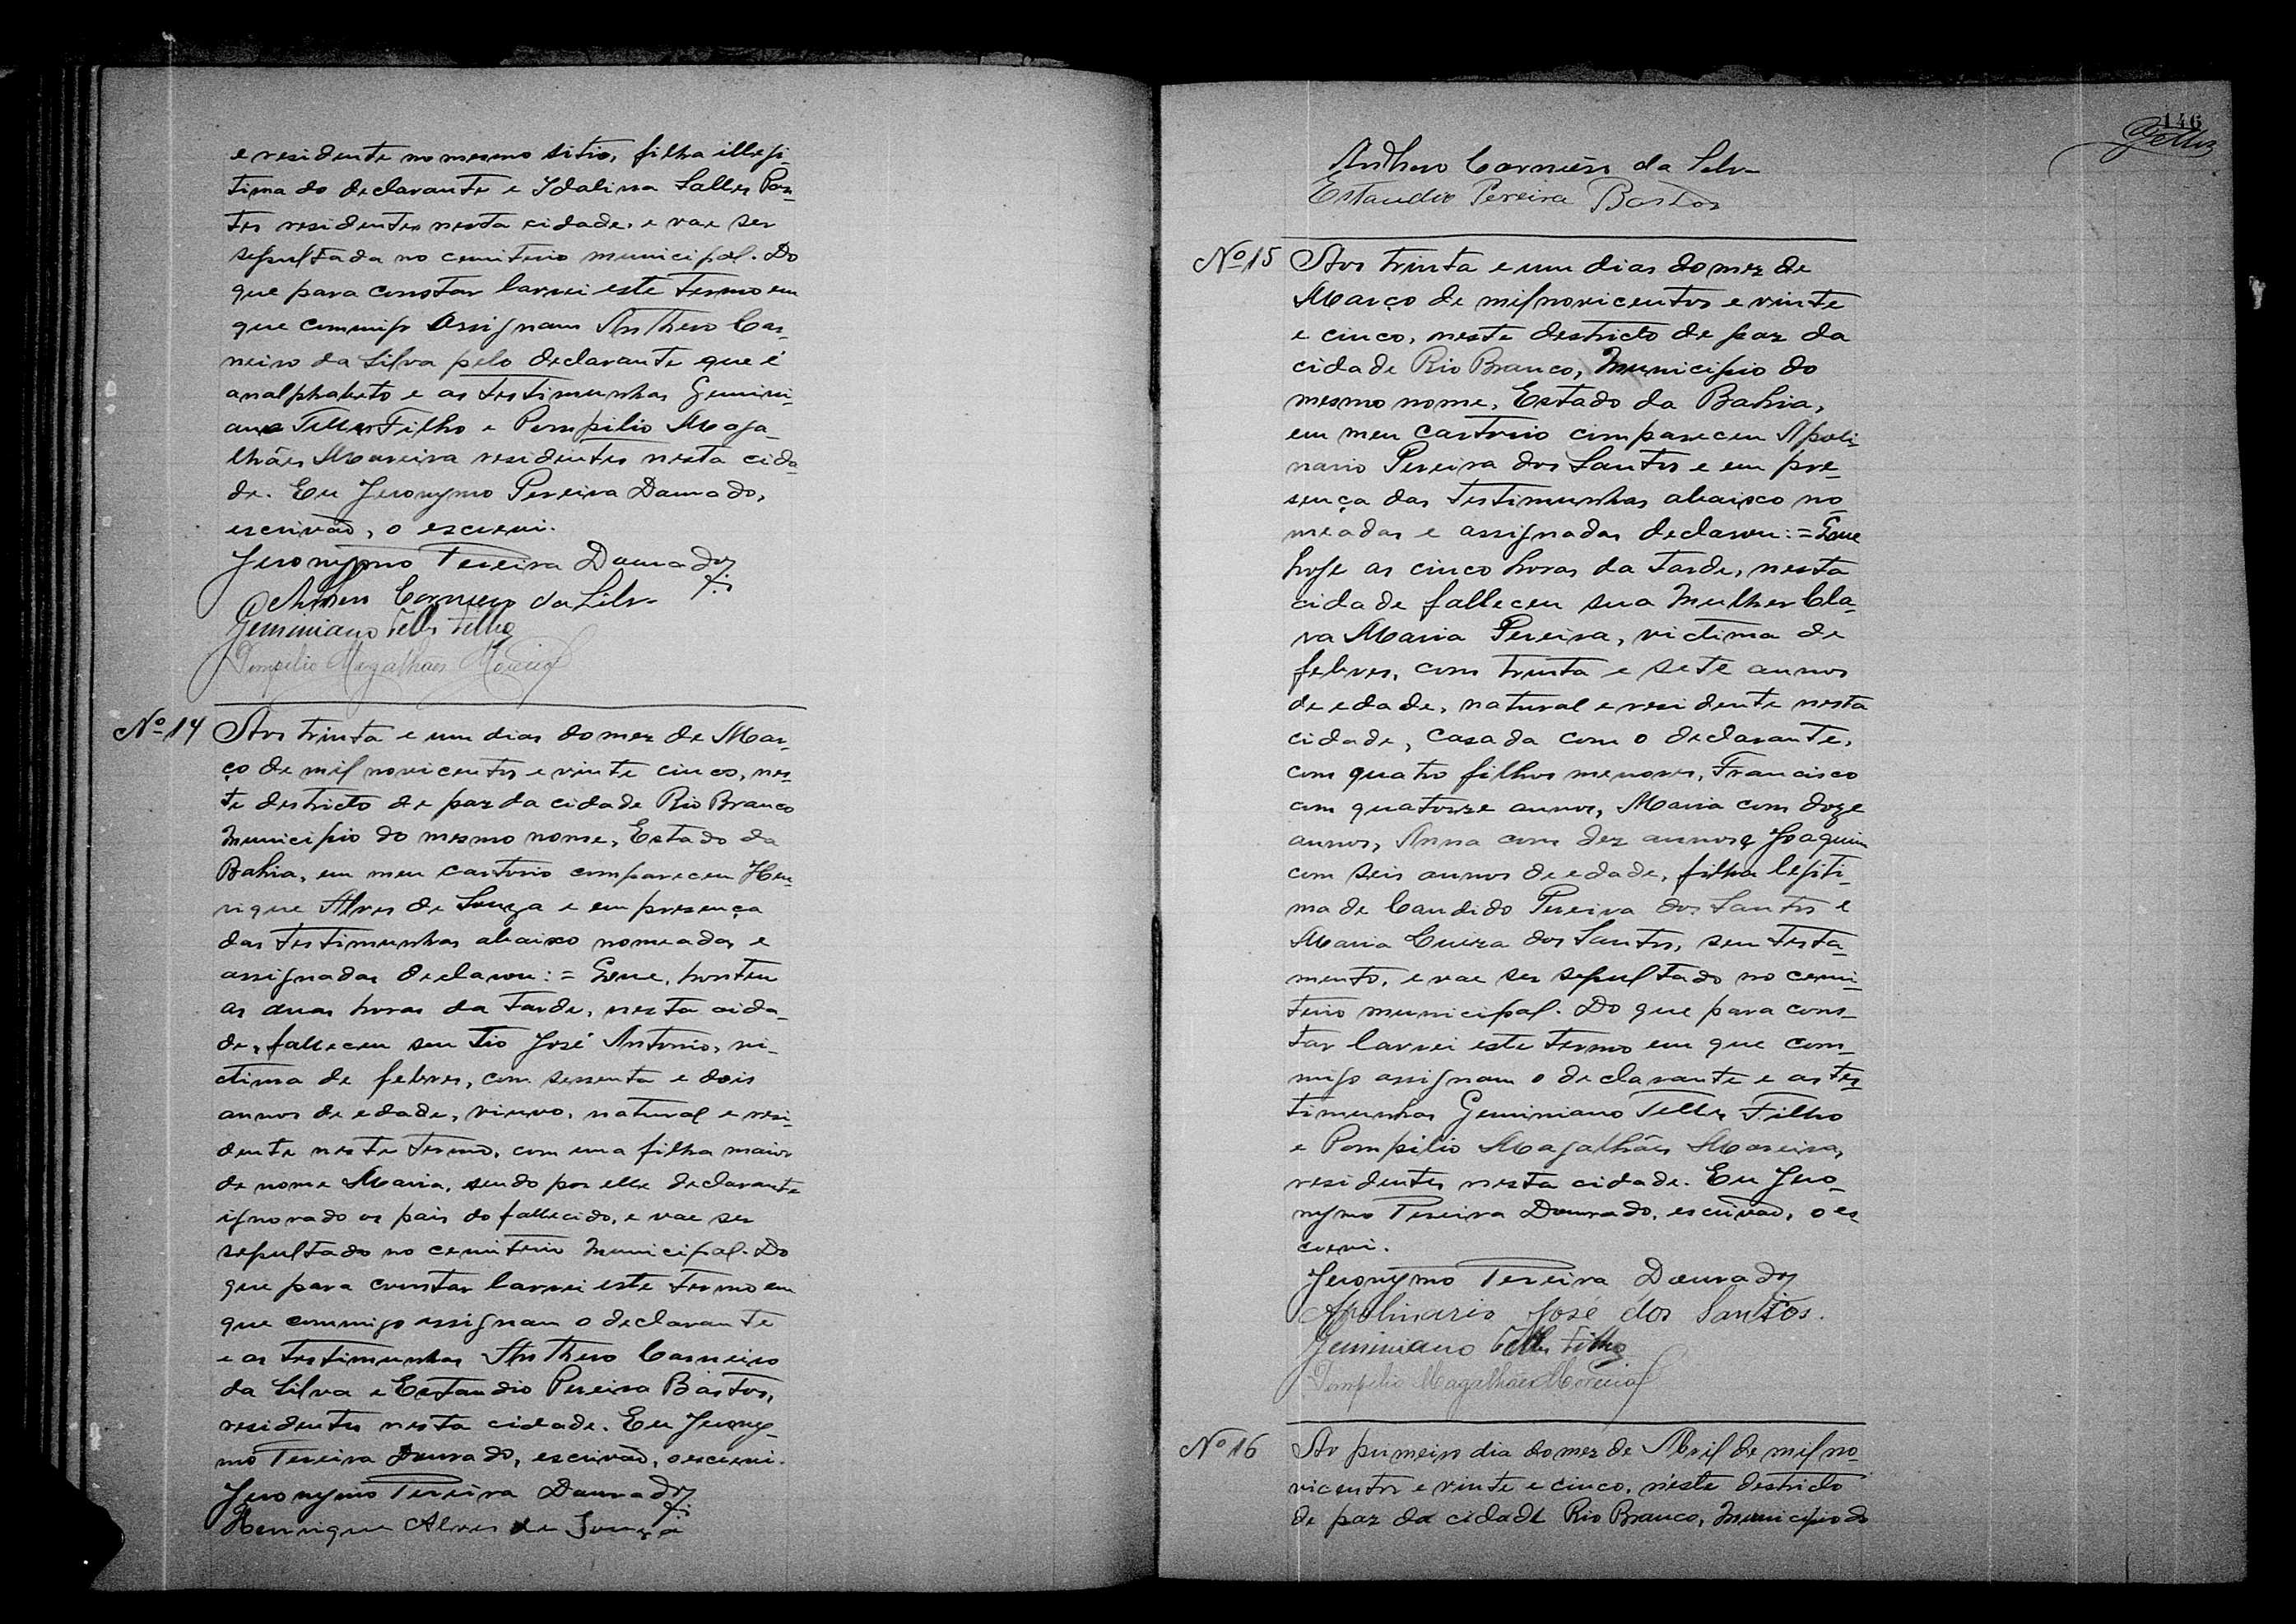 e residente no mesmo sitio, filha illegi-
tima do declarante e Idalina Salles Pon-
tes residentes nesta cidade, e vae ser
sepultada no cemiterio municipal. Do
que para constar lavrei este termo em
que commigo assignam Anthero Car-
neiro da Silva pelo declarante que é
analphabeto e as testimunhas Gemini-
ano Telles Filho e Pompilio Maga-
lhães Moreira residentes nesta cida-
de. Eu Jeronymo Pereira Dourado,
escrivão, o escrevi.
Jeronymo Pereira Dourado
Anthero Carneiro da Silva
Geminiano Telles Filho
Pompilio Magalhães Moreira
Nº 14 Aos trinta e um dias do mez de Mar-
ço de mil novicentos e vinte cinco, nes-
te destricto de paz da cidade Rio Branco
Municipio do mesmo nome, Estado da
Bahia, em meu cartorio compareceu Hen-
rique Alves de Souza e em presença
das testimunhas abaixo nomeadas e
assignadas declarou: = Que, hontem
as duas horas da tarde, nesta cida-
de, falleceu seu tio José Antonio, vi-
ctima de febres, com sessenta e dois
annos de edade, viuvo, natural e resi-
dente neste termo, com uma filha maior
de nome Maria, sendo por elle declarante
ignorado os pais do fallecido, e vae ser
sepultado no cemiterio Municipal. Do
que para constar lavrei este termo em
que commigo assignam o declarante
e as testimunhas Anthero Carneiro
da Silva e Estaudio Pereira Bastos,
residentes nesta cidade. Eu Jerony-
mo Pereira Dourado, escrivão, o escrevi.
Jeronymo Pereira Dourado
Henrique Alves de Souza
146
Telles
Anthero Carneiro da Silva
Estaudio Pereira Bastos
Nº 15 Aos trinta e um dias do mez de
Março de mil novicentos e vinte
e cinco, neste destricto de paz da
cidade Rio Branco, Municipio do
mesmo nome, Estado da Bahia,
em meu cartorio compareceu Apoli-
nario Pereira dos Santos e em pre-
sença das testimunhas abaixo no-
meadas e assignadas declarou: = Que
hoje as cinco horas da tarde, nesta
cidade falleceu sua Mulher Cla-
ra Maria Pereira, victima de
febres, com trinta e sete annos
de edade, natural e residente nesta
cidade, casada com o declarante,
com quatro filhos menores, Francisco
com quatorze annos, Maria com doze
annos, Anna com dez annos e Joaquim
com seis annos de edade, filha legiti-
ma de Candido Pereira dos Santos e
Maria Luiza dos Santos, sem testa-
mento, e vae ser sepultado no cemi-
terio municipal. Do que para cons-
tar lavrei este termo em que com-
migo assignam o declarante e as tes-
timunhas Geminiano Telles Filho
e Pompilio Magalhães Moreira,
residentes nesta cidade. Eu Jero-
nymo Pereira Dourado, escrivão, o es-
crevi.
Jeronymo Pereira Dourado
Apolinario José dos Santos.
Geminiano Telles Filho
Pompilio Magalhães Moreira
Nº 16 Ao primeiro dia do mez de Abril de mil no-
vicentos e vinte e cinco, neste destricto
de paz da cidade Rio Branco, Municipio do